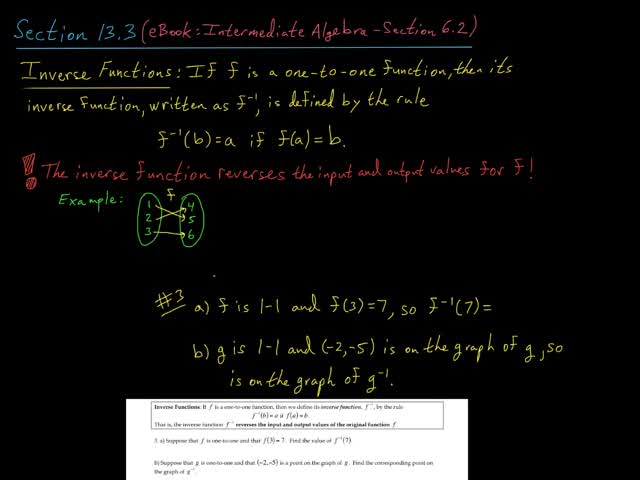 Section 13.3 (eBook: Intermediate Algebra - Section 6.2)
Inverse Functions: If f is a one-to-one function, then its
inverse function, written as f⁻¹, is defined by the rule
f⁻¹(b)=a if f(a)=b.
! The inverse function reverses the input and output values for f!
Example:
f
1 4
2 5
3 6
#3 a) f is 1-1 and f(3)=7, so f⁻¹(7)=
b) g is 1-1 and (-2,-5) is on the graph of g, so
is on the graph of g⁻¹.
Inverse Functions: If f is a one-to-one function, then we define its inverse function, f⁻¹, by the rule
f⁻¹(b)=a if f(a)=b.
That is, the inverse function f⁻¹ reverses the input and output values of the original function f.
3. a) Suppose that f is one-to-one and that f(3)=7. Find the value of f⁻¹(7).
b) Suppose that g is one-to-one and that (-2,-5) is a point on the graph of g. Find the corresponding point on
the graph of g⁻¹.